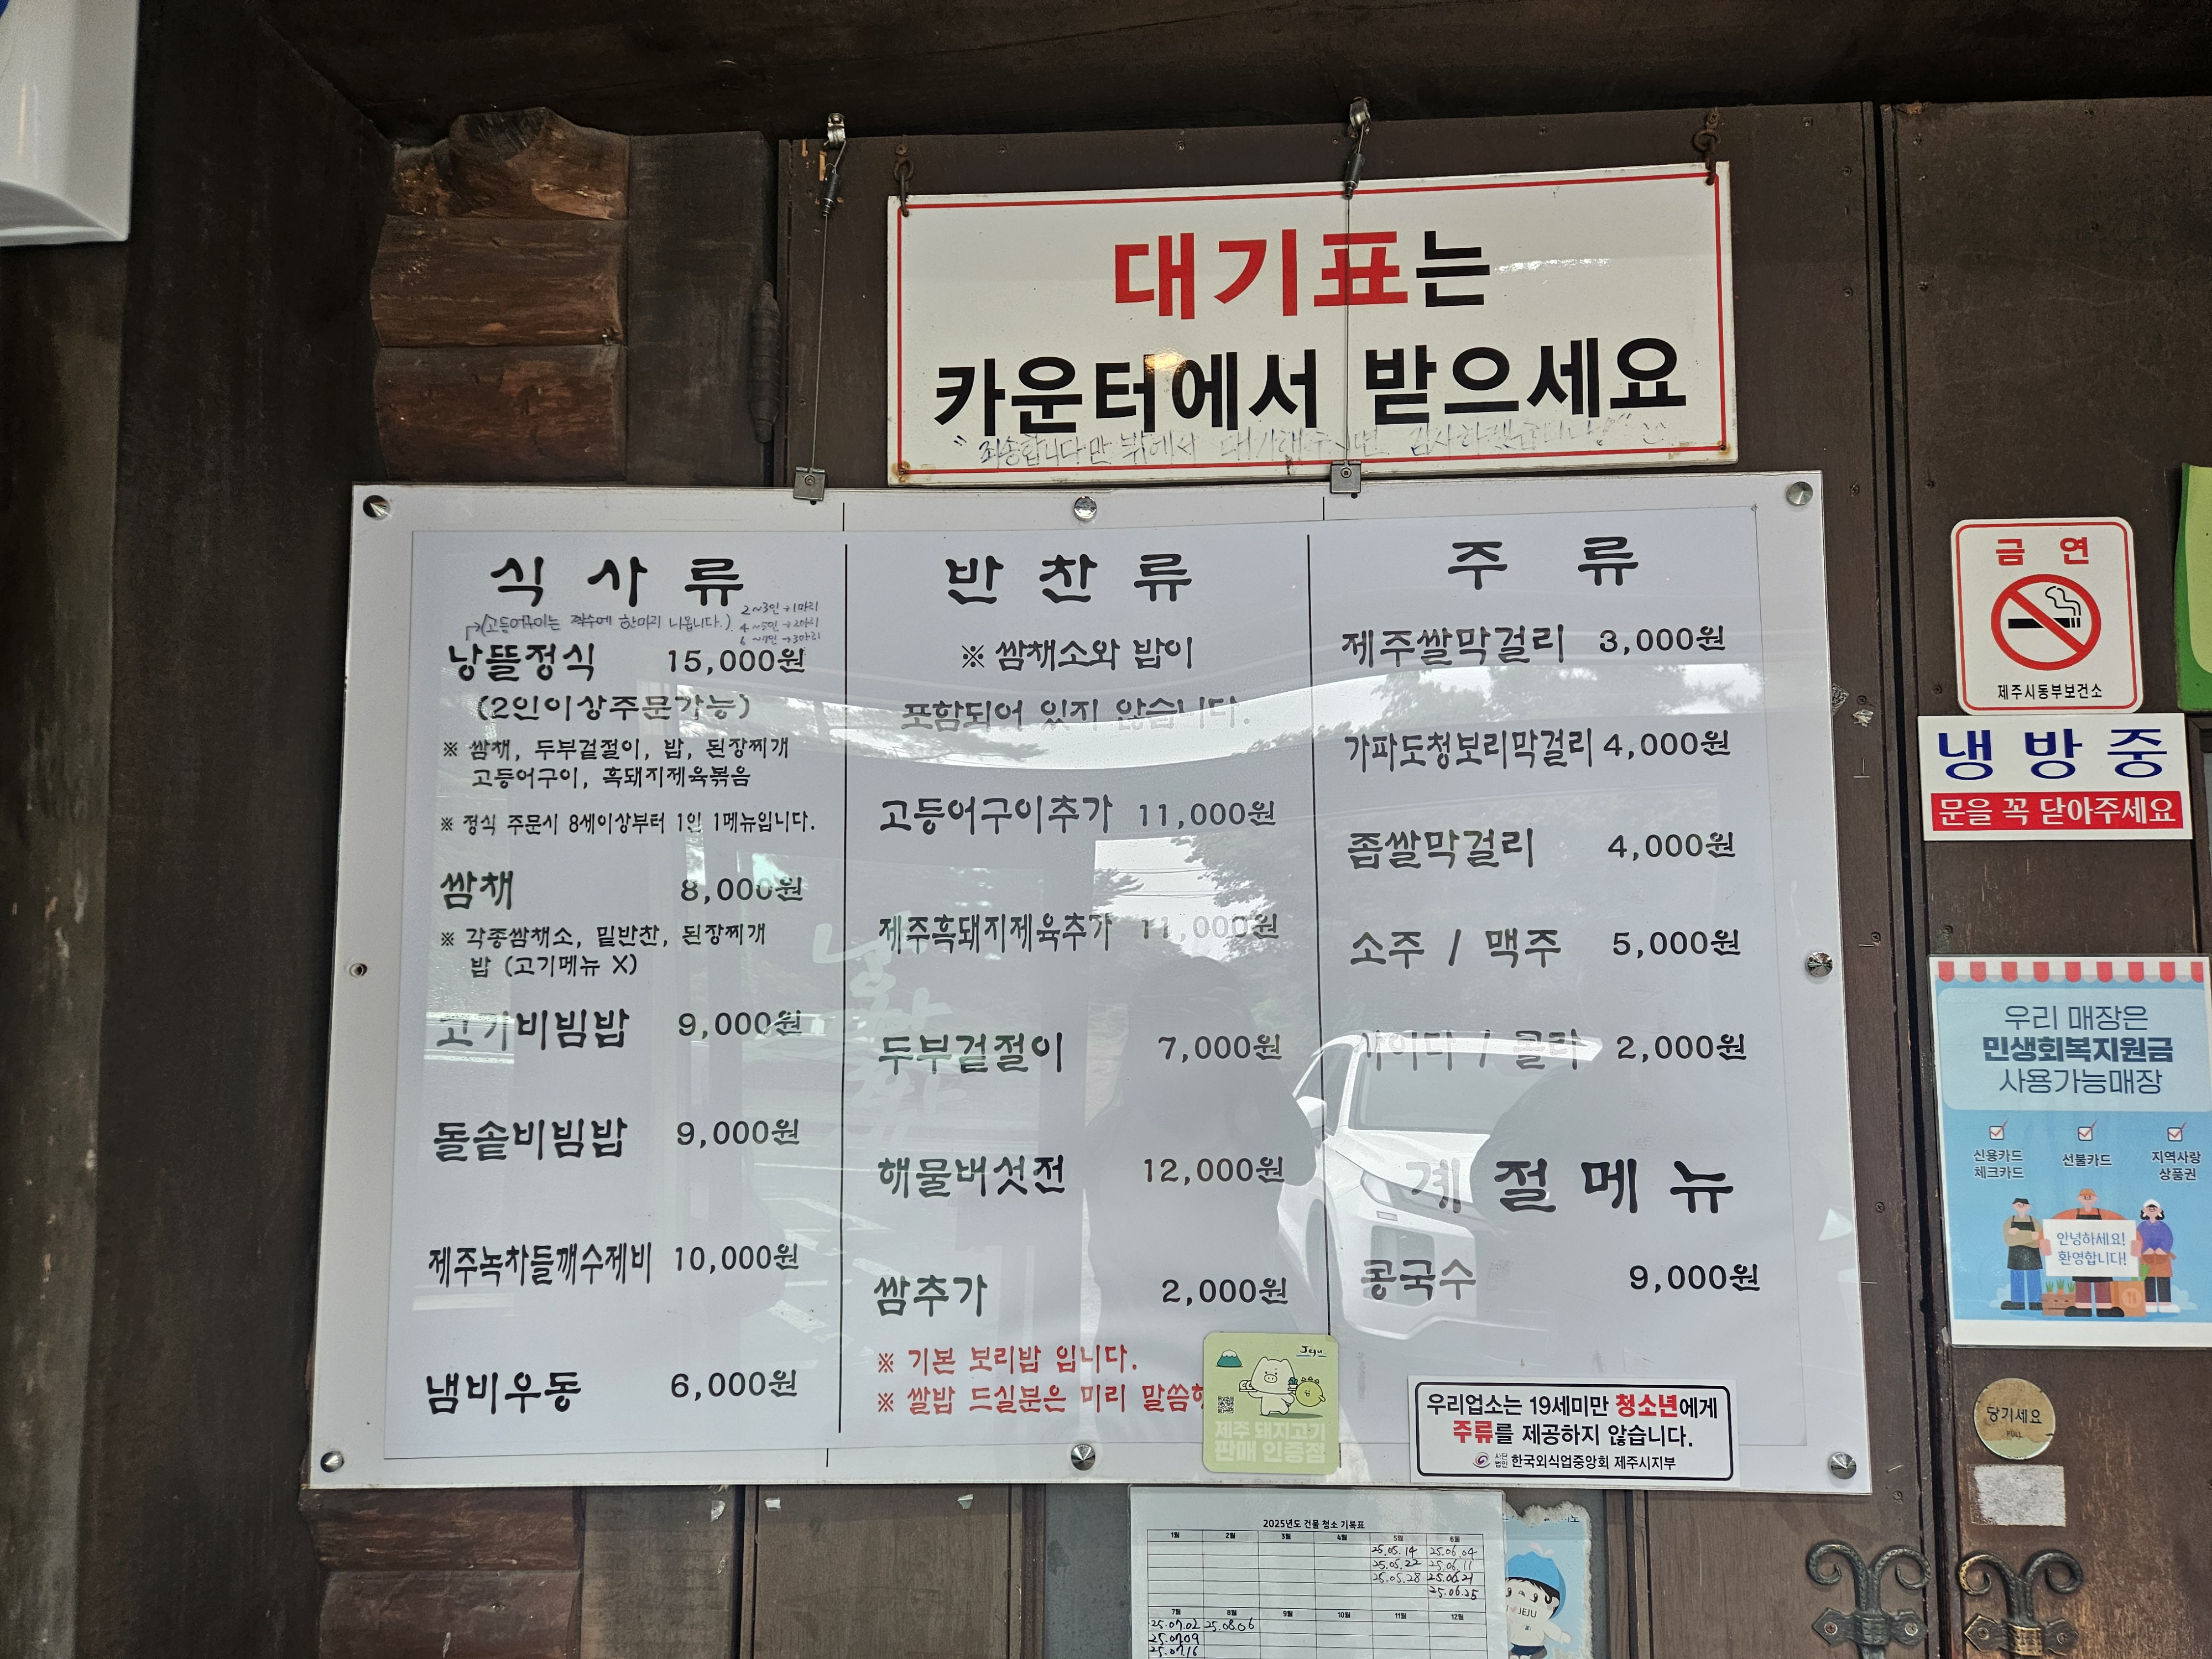 대기표는
카운터에서 받으세요
"죄송합니다만 밖에서 대기해주시면 감사하겠습니다"
식사류
(고등어구이는 적수에 한마리 나옵니다.)
2~3인→1마리
4~5인→2마리
6~7인→3마리
낭뜰정식 15,000원
(2인이상주문가능)
※ 쌈채, 두부겉절이, 밥, 된장찌개
고등어구이, 흑돼지제육볶음
※ 정식 주문시 8세이상부터 1인 1메뉴입니다.
쌈채 8,000원
※ 각종쌈채소, 밑반찬, 된장찌개
밥 (고기메뉴 X)
고기비빔밥 9,000원
돌솥비빔밥 9,000원
제주녹차들깨수제비 10,000원
냄비우동 6,000원
반찬류
※ 쌈채소와 밥이
포함되어 있지 않습니다.
고등어구이추가 11,000원
제주흑돼지제육추가 11,000원
두부겉절이 7,000원
해물버섯전 12,000원
쌈추가 2,000원
※ 기본 보리밥 입니다.
※ 쌀밥 드실분은 미리 말씀해
Jeju
제주 돼지고기
판매 인증점
주류
제주쌀막걸리 3,000원
가파도청보리막걸리 4,000원
좁쌀막걸리 4,000원
소주 / 맥주 5,000원
사이다 / 콜라 2,000원
계절메뉴
콩국수 9,000원
우리업소는 19세미만 청소년에게
주류를 제공하지 않습니다.
사단법인 한국외식업중앙회 제주시지부
금연
제주시동부보건소
냉방중
문을 꼭 닫아주세요
우리 매장은
민생회복지원금
사용가능매장
신용카드
체크카드
선불카드
지역사랑
상품권
안녕하세요!
환영합니다!
당기세요
PULL
2025년도 건물 청소 기록표
1월 2월 3월 4월 5월 6월
25.05.14 25.06.04
25.05.22 25.06.11
25.05.28 25.06.21
25.06.25
7월 8월 9월 10월 11월 12월
25.07.02 25.08.06
25.07.09
25.07.16
JEJU